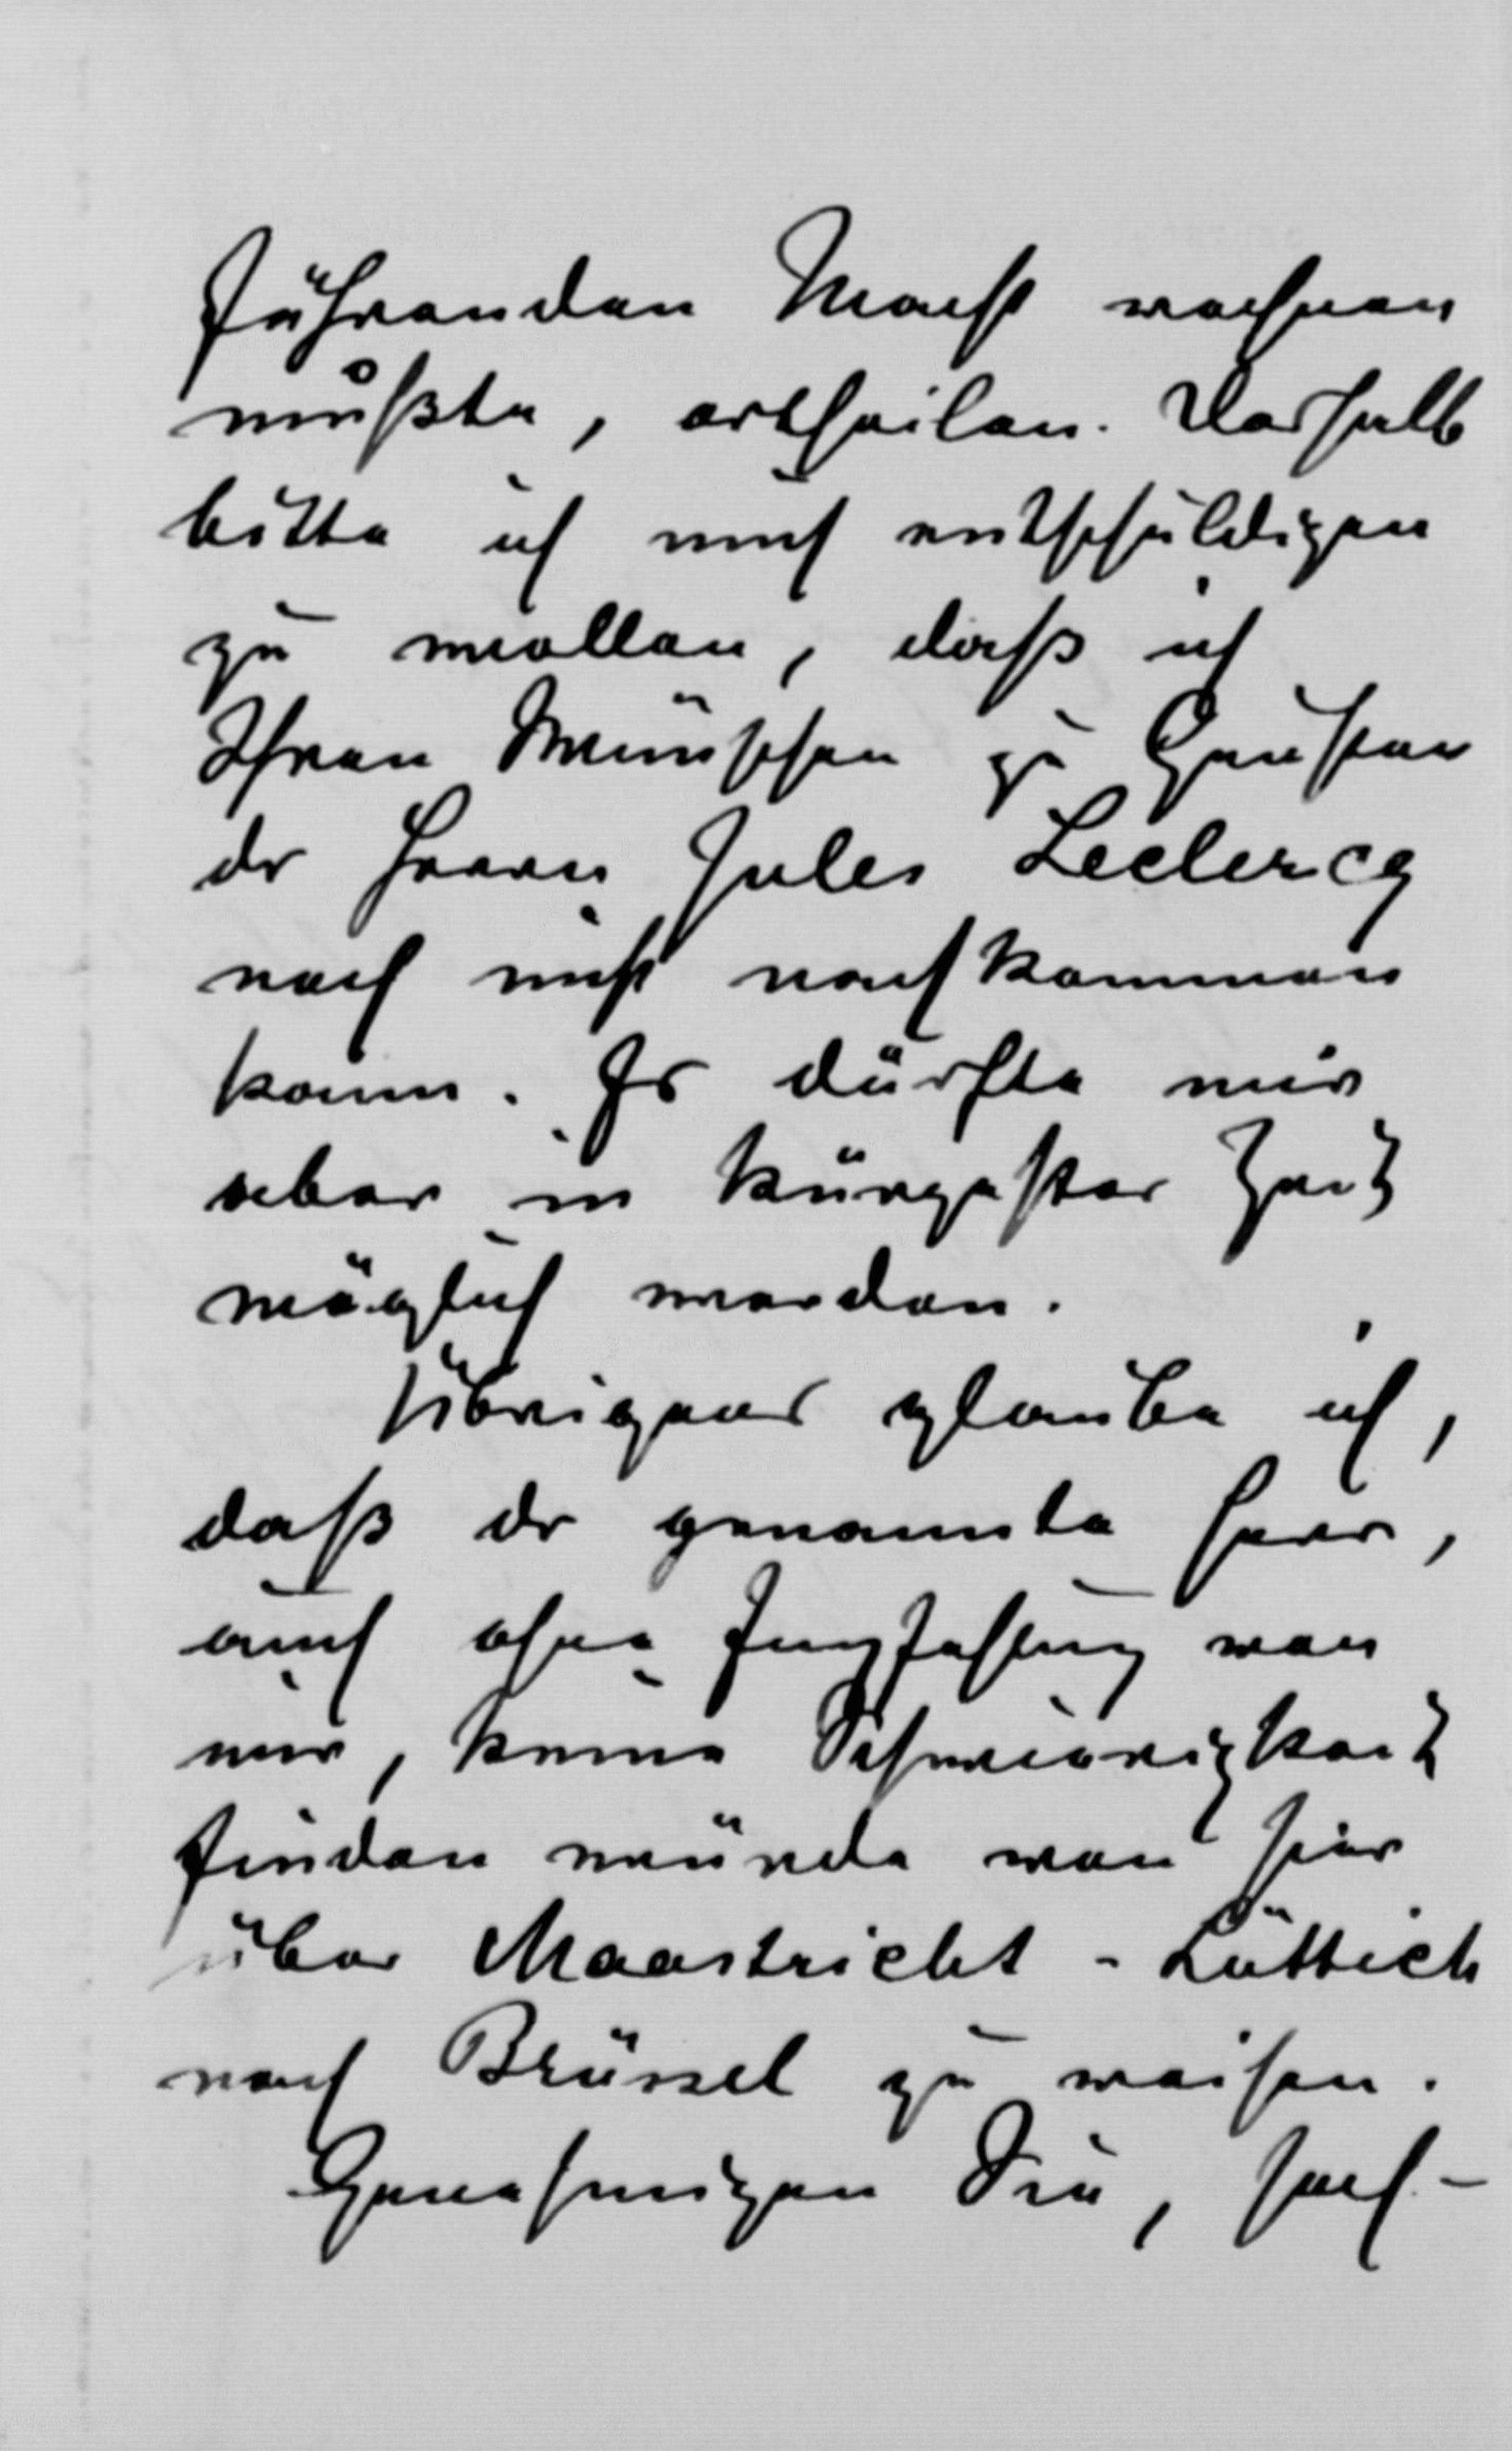 führenden Macht rechnen
mußte, ertheilen. Deshalb
bitte ich mich entschuldigen
zu wollen, daß ich
Ihren Wünschen zu Gunsten
des Herrn Jules Leclercq
noch nicht nachkommen
kann. Es dürfte mir
aber in kürzester Zeit
möglich werden.
Übrigens glaube ich,
daß der genannte Herr,
auch ohne Empfehlung von
mir, keine Schwierigkeit
finden würde von hier
über Maastricht - Lüttich
nach Brüssel zu reisen.
Genehmigen Sie, hoch-